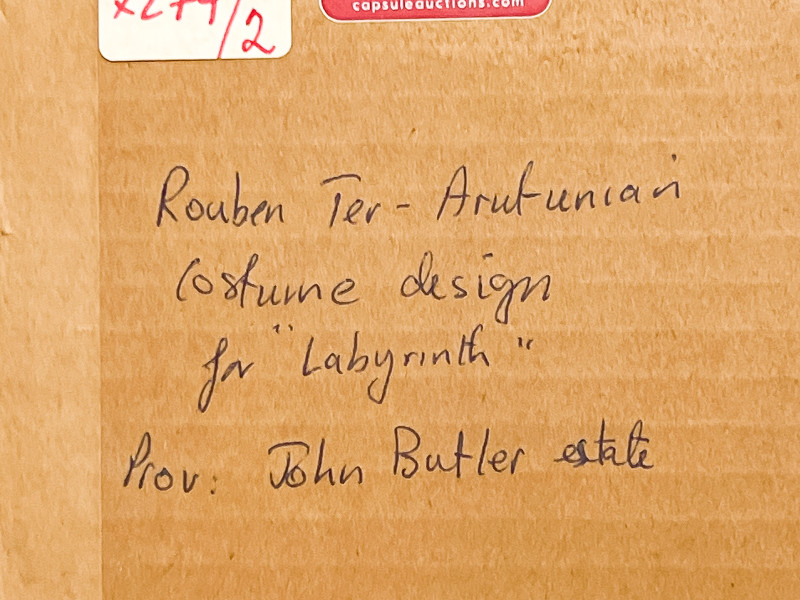 x274/2
capsuleauctions.com
Rouben Ter-Arutunian
Costume design
for "Labyrinth"
Prov: John Butler estate